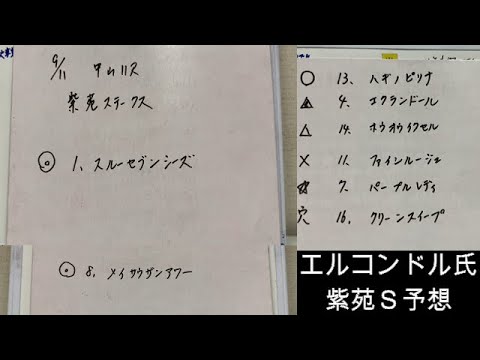 9/11 中山11R
紫苑ステークス
◎ 1、スルーセブンシーズ
◎ 8、メイサウザンアワー
○ 13、ハギノピリナ
▲ 4、エクランドール
△ 14、ホウオウイクセル
× 11、ファインルージュ
☆ 7、パープルレディ
穴 16、クリーンスイープ
エルコンドル氏
紫苑S予想